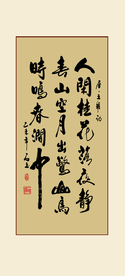 唐王維詩
人閑桂花落夜靜
春山空月出驚山鳥
時鳴春澗中